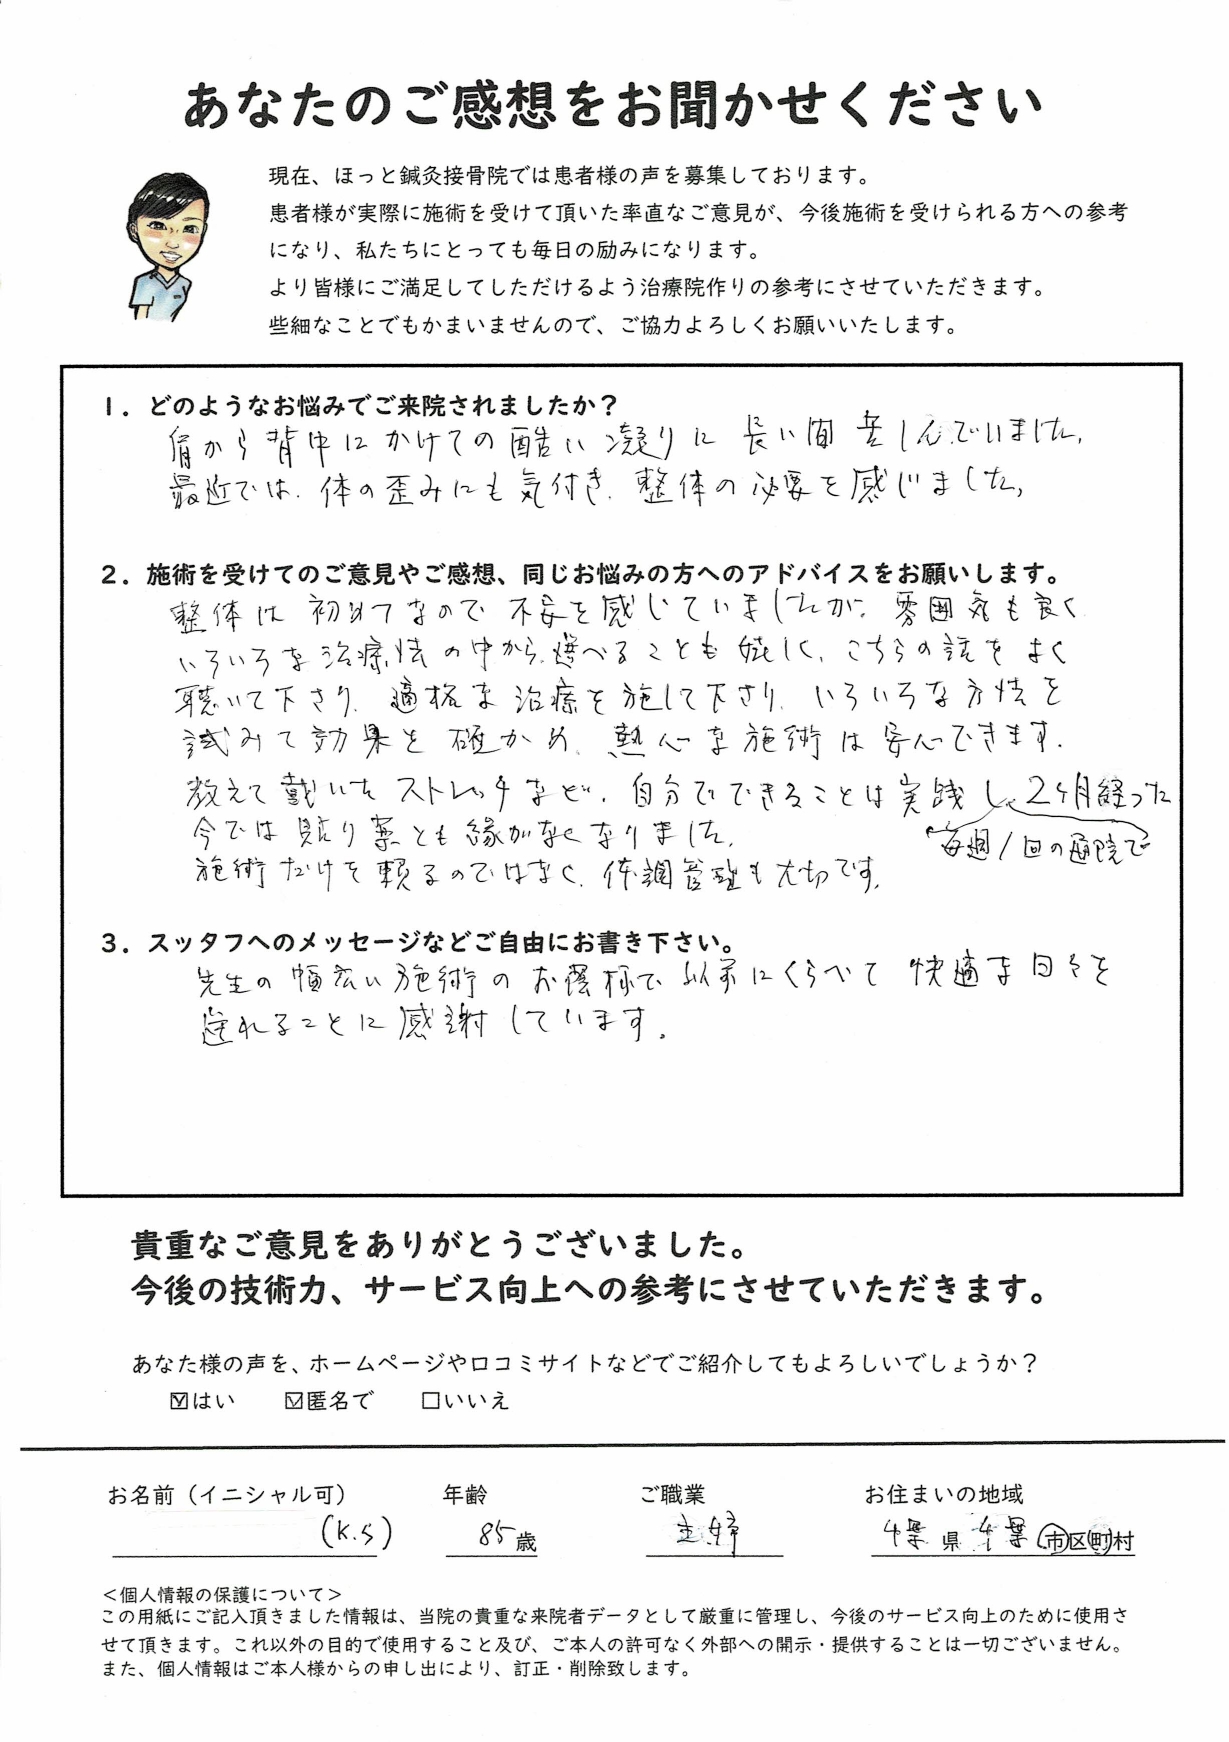 あなたのご感想をお聞かせください
現在、ほっと鍼灸接骨院では患者様の声を募集しております。
患者様が実際に施術を受けて頂いた率直なご意見が、今後施術を受けられる方への参考
になり、私たちにとっても毎日の励みになります。
より皆様にご満足してしただけるよう治療院作りの参考にさせていただきます。
些細なことでもかまいませんので、ご協力よろしくお願いいたします。
1．どのようなお悩みでご来院されましたか？
肩から背中にかけての酷い凝りに長い間苦しんでいました。
最近では、体の歪みにも気付き、整体の必要を感じました。
2．施術を受けてのご意見やご感想、同じお悩みの方へのアドバイスをお願いします。
整体は初めてなので不安を感じていましたが、雰囲気も良く
いろいろな治療法の中から選べることも嬉しく、こちらの話をよく
聴いて下さり、適格な治療を施して下さり、いろいろな方法を
試みて効果を確かめ、熱心な施術は安心できます。
教えて戴いたストレッチなど、自分でできることは実践し、2ヶ月経った
毎週1回の通院で
今では貼り薬とも縁がなくなりました。
施術だけを頼るのではなく、体調管理も大切です。
3．スッタフへのメッセージなどご自由にお書き下さい。
先生の幅広い施術のお蔭様で、以前にくらべて快適な日々を
送れることに感謝しています。
貴重なご意見をありがとうございました。
今後の技術力、サービス向上への参考にさせていただきます。
あなた様の声を、ホームページや口コミサイトなどでご紹介してもよろしいでしょうか？
☑はい ☑匿名で □いいえ
お名前（イニシャル可） 年齢 ご職業 お住まいの地域
(K.S) 85歳 主婦 千葉県千葉市区町村
＜個人情報の保護について＞
この用紙にご記入頂きました情報は、当院の貴重な来院者データとして厳重に管理し、今後のサービス向上のために使用さ
せて頂きます。これ以外の目的で使用すること及び、ご本人の許可なく外部への開示・提供することは一切ございません。
また、個人情報はご本人様からの申し出により、訂正・削除致します。